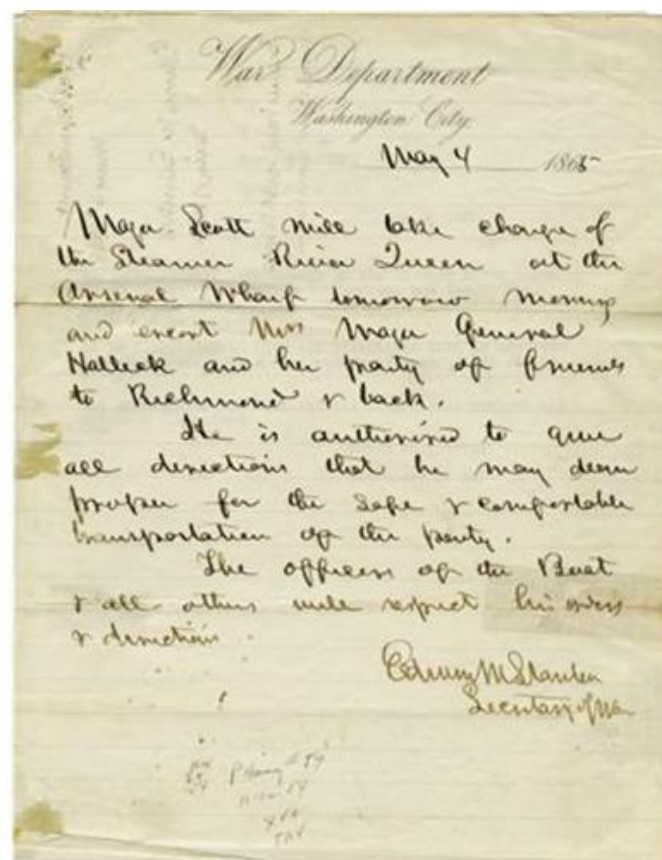 War Department
Washington City
May 4 1865
Major Scott will take charge of
the Steamer River Queen at the
Arsenal Wharf tomorrow morning
and escort Mrs Major General
Halleck and her party of friends
to Richmond & back.
He is authorised to give
all directions that he may deem
proper for the safe & comfortable
transportation of the party.
The officers of the Boat
& all others will respect his orders
& directions.
Edwin M Stanton
Secretary of War